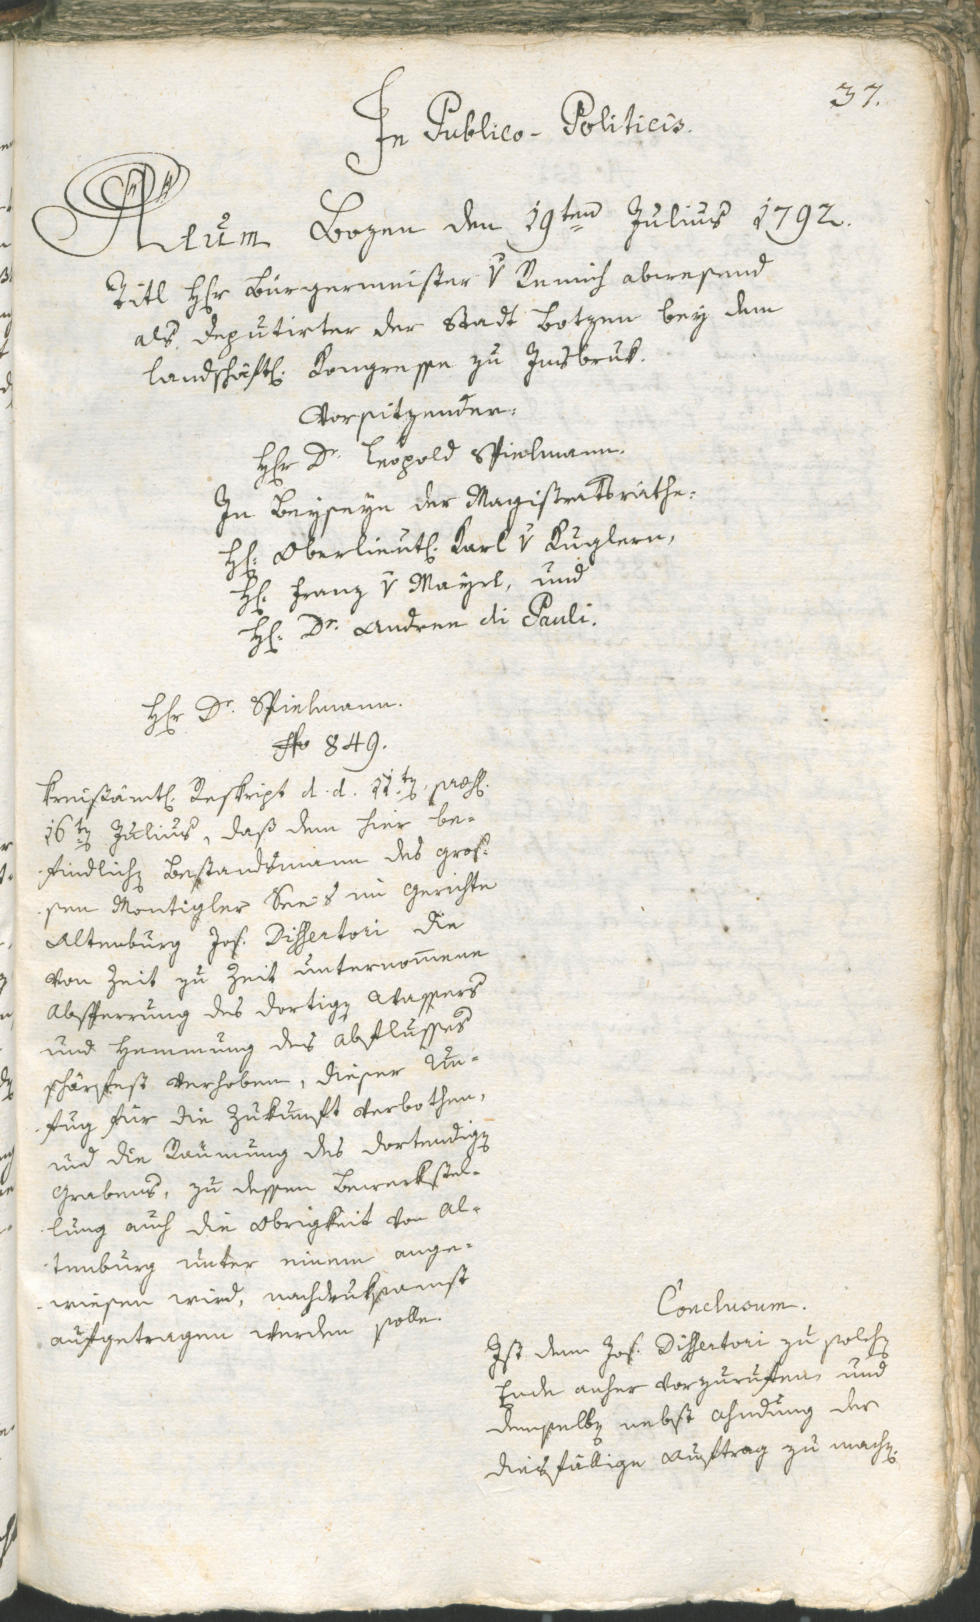 37.
In Publico-Politicis.
Actum Bozen den 19ten Julius 1792.
Titl Hr Bürgermeister v Remich abwesend
als Deputirter der Stadt Botzen bey dem
landschäftl. Kongresse zu Insbruk.
Vorsitzender:
Hr Dr. Leopold Spielmann.
In Beyseyn der Magistratsräthe:
H: Oberlieut: Karl v Kuglern,
H: Franz v Mayrl, und
H: Dr. Andree di Pauli.
Hr Dr. Spielmann.
No 849.
Kreisämtl. Reskript d. d. 11ten praes.
16ten Julius, daß dem hier be-
findlichen Bestandsmann des gros-
sen Montigler See's im Gerichte
Altenburg Jos. Dissertori die
von Zeit zu Zeit unternom̄ene
Absperrung des dortigen Wassers
und Hemmung des Abflusses
schärfest verhoben, dieser Un-
fug für die Zukunft verbothen,
und die Räumung des dortendigen
Grabens, zu dessen Bewerkstel-
lung auch die Obrigkeit von Al-
tenburg unter einem ange-
wiesen wird, nachdruksamst
aufgetragen werden solle.
Conclusum.
Ist dem Jos. Dissertori zu solchen
Ende anher vorzuruffen und
demselben nebst Ahndung der
diesfällige Auftrag zu machen.